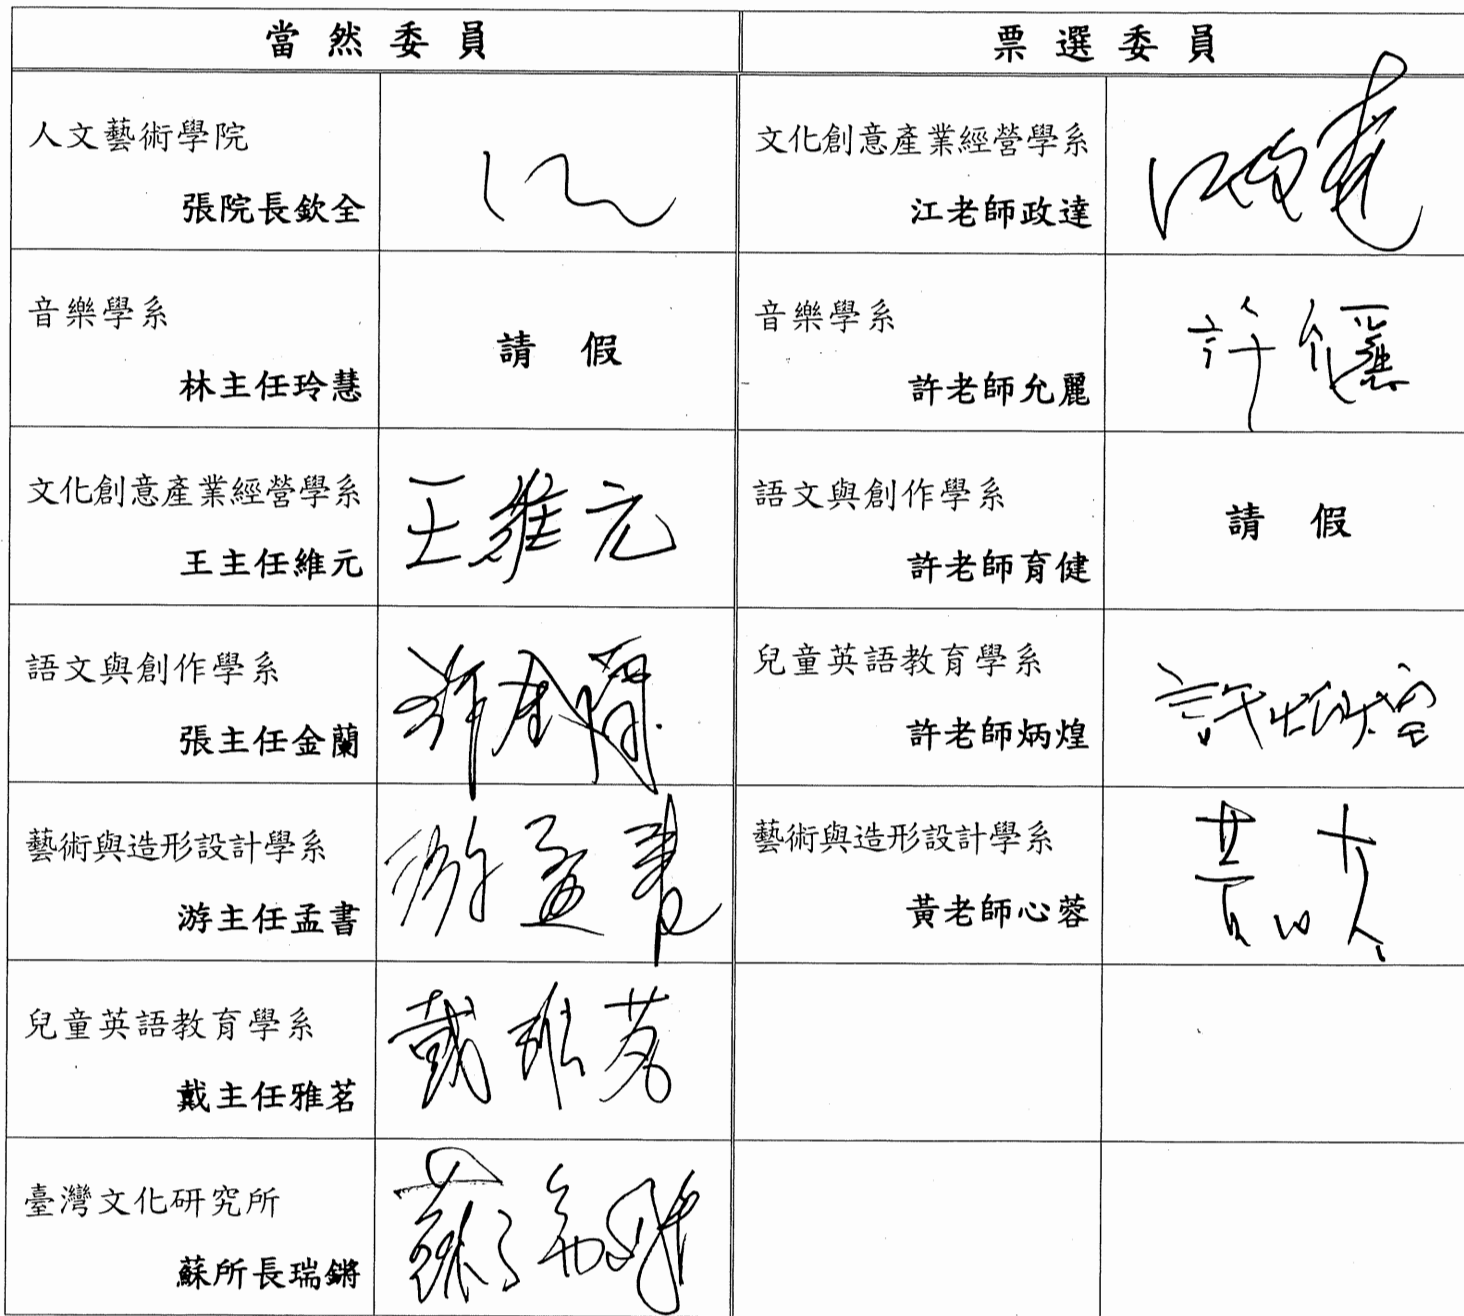 當然委員
票選委員
人文藝術學院
張院長欽全
文化創意產業經營學系
江老師政達
音樂學系
林主任玲慧
請假
音樂學系
許老師允麗
許
文化創意產業經營學系
王主任維元
王維元
語文與創作學系
許老師育健
請假
語文與創作學系
張主任金蘭
兒童英語教育學系
許老師炳煌
許炳煌
藝術與造形設計學系
游主任孟書
游孟書
藝術與造形設計學系
黃老師心蓉
黃心
兒童英語教育學系
戴主任雅茗
戴雅茗
臺灣文化研究所
蘇所長瑞鏘